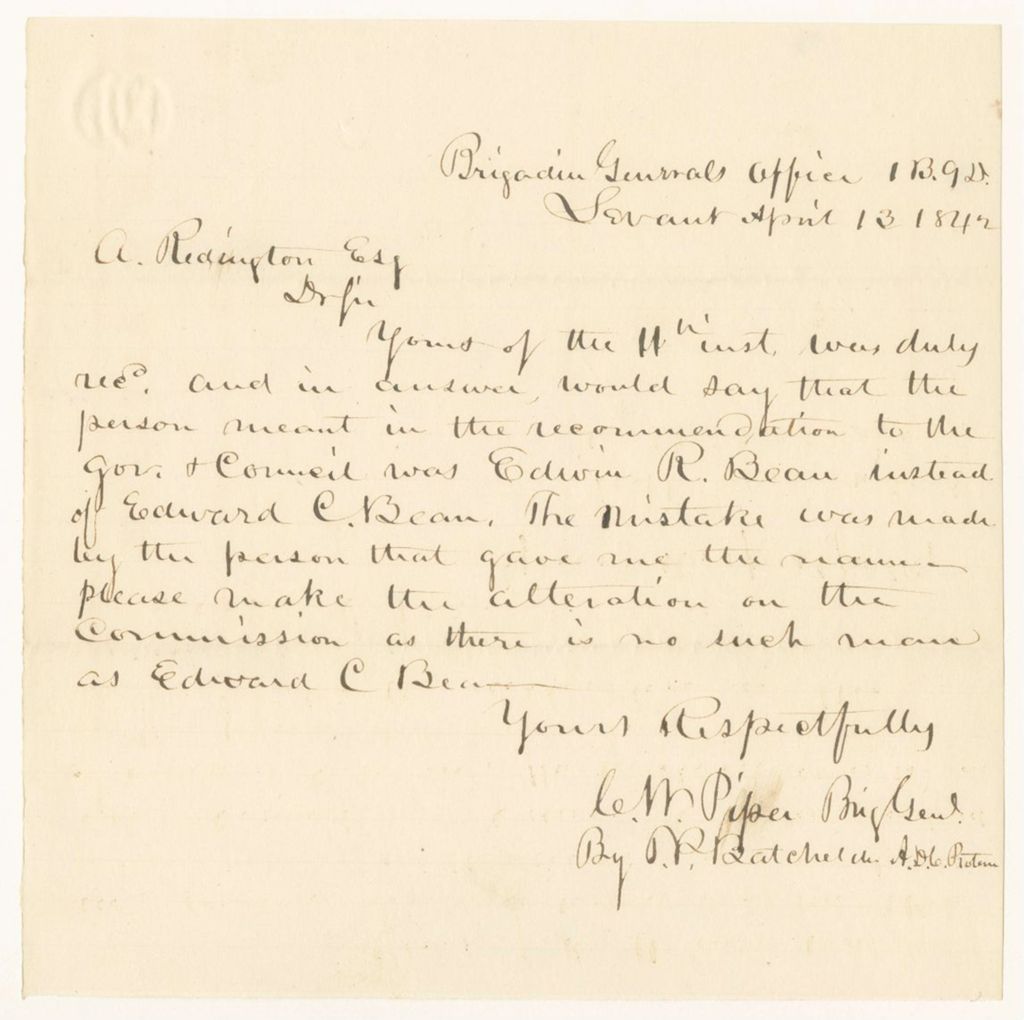 Brigadier Generals Office 1 B. 9 D.
Levant April 13 1842
A. Redington Esq
Dr Sir
Yours of the 11th inst. was duly
recd. and in answer, would say that the
person meant in the recommendation to the
Gov. & Council was Edwin R. Bean instead
of Edward C. Bean. The mistake was made
by the person that gave me the name
please make the alteration on the
Commission as there is no such man
as Edward C Bean
Yours Respectfully
C. W. Piper Brig Genl.
By Batchelder A.D.C. Protem